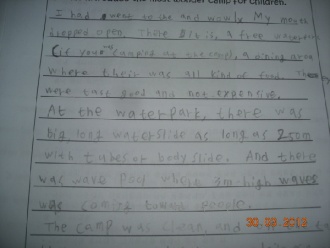 camp for children.
I had went to use and wowly My mouth
dropped open. There
(if your camping at the camp), a dining area
where their was all kind of food. The
were taste good and not expensive.
At the waterpark, there was
big long waterslide as long as 250m
with tubes or body slide. And there
was wave pool where 3m-high waves
was coming toward people.
The camp was clean, and
30.09.2013